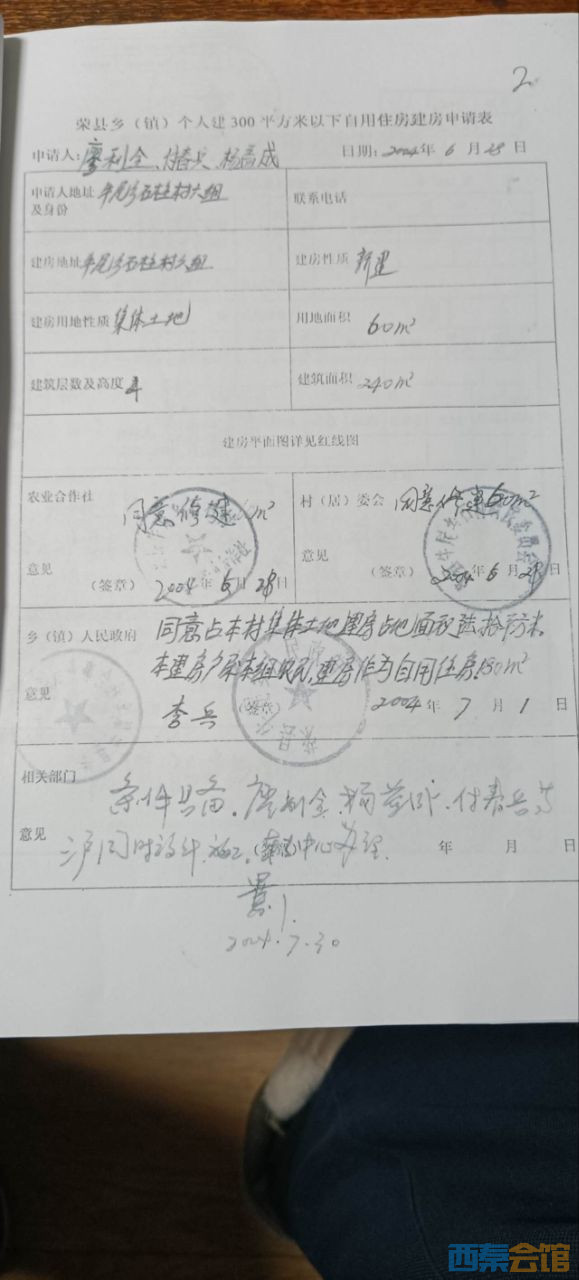 2
荣县乡（镇）个人建300平方米以下自用住房建房申请表
申请人：廖利全、付春兵、杨 成
日期：2004年6月28日
申请人地址及身份 石柱村六组
联系电话
建房地址 石柱村六组
建房性质 新建
建房用地性质 集体土地
用地面积 60m²
建筑层数及高度 4
建筑面积 240m²
建房平面图详见红线图
农业合作社 同意修建 m²
意见
（签章） 2004年6月28日
村（居）委会 同意修建60m²
意见
（签章） 2004年6月28日
乡（镇）人民政府 同意占本村集体土地建房占地面积陆拾平方米。
本建房户系本组农民，建房作为自用住房 m²
意见 李兵 （签章） 2004年7月1日
相关部门 条件具备。廖利全、杨 、付春兵等
意见 三户同时设计、施工。 中心办理. 年 月 日
2004.7.30
西秦会馆